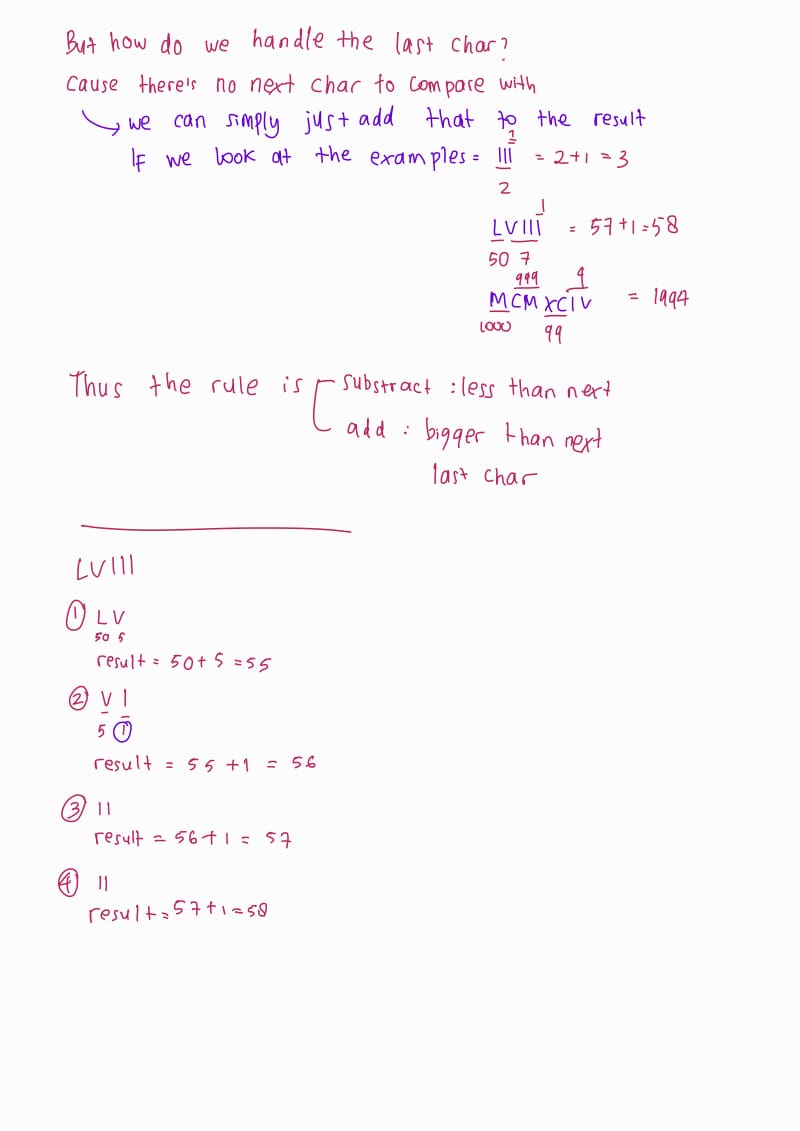 But how do we handle the last char?
Cause there's no next char to compare with
↳ we can simply just add that to the result
If we look at the examples = III = 2+1 = 3
1
2
1
LVIII = 57+1=58
50 7
999 9
MCMXCIV = 1994
1000 99
Thus the rule is substract : less than next
add : bigger than next
last char
LVIII
① LV
50 5
result = 50+5 =55
② VI
5 ①
result = 55+1 = 56
③ II
result = 56+1 = 57
④ II
result = 57+1=58